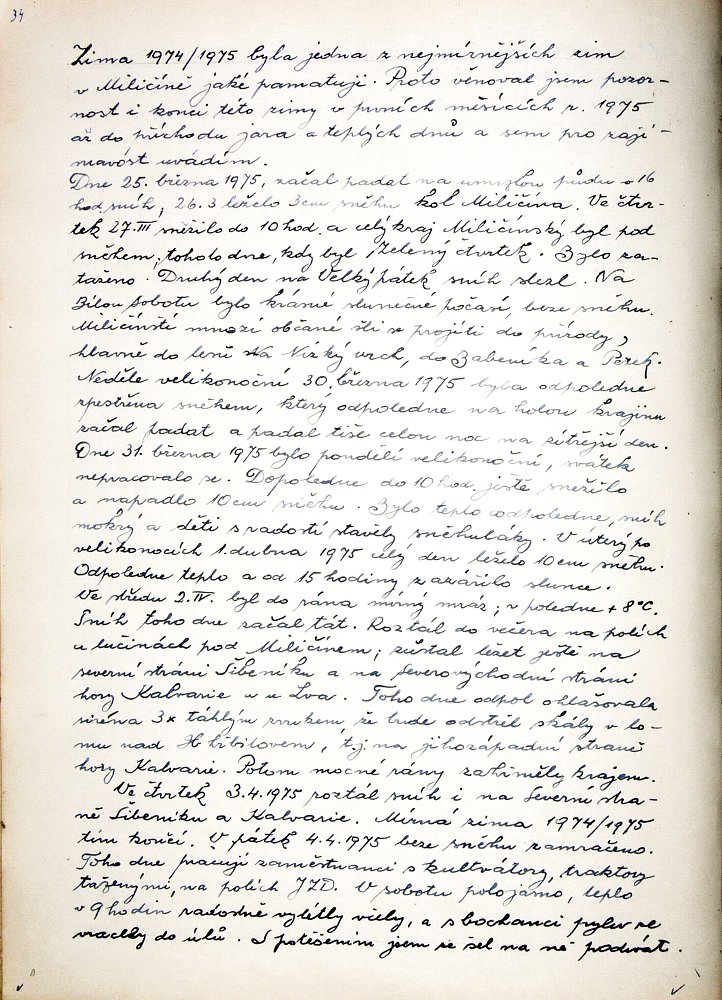 34
Zima 1974/1975 byla jedna z nejmírnějších zim
v Miličíně jaké pamatuji. Proto věnoval jsem pozor-
nost i konci této zimy v prvních měsících r. 1975
až do příchodu jara a teplých dnů a sem pro zají-
mavost uvádím.
Dne 25. března 1975, začal padat na umrzlou půdu o 16
hod. sníh, 26.3 leželo 3cm sněhu kol Miličína. Ve čtvr-
tek 27.III sněžilo do 10 hod. a celý kraj Miličínský byl pod
sněhem, toho to dne, kdy byl "Zelený čtvrtek. Bylo za-
taženo. Druhý den na Velký pátek sníh slezl. Na
Bílou Sobotu bylo krásné slunečné počasí, beze sněhu.
Miličínští mnozí občané šli se projíti do přírody,
hlavně do lesů na Nízký vrch, do Babeníka a Perek.
Neděle velikonoční 30. března 1975 byla odpoledne
zpestřena sněhem, který odpoledne na holou krajinu
začal padat a padal tiše celou noc na zítřejší den.
Dne 31. března 1975 bylo pondělí velikonoční, svátek
nepracovalo se. Dopoledne do 10 hod. ještě sněžilo
a napadlo 10 cm sněhu. Bylo teplo odpoledne, sníh
mokrý a děti s radostí stavěly sněhuláky. V úterý po
velikonocích 1. dubna 1975 celý den leželo 10 cm sněhu.
Odpoledne teplo a od 15 hodiny zazářilo slunce.
Ve středu 2.IV. byl do rána mírný mráz; v poledne + 8°C.
Sníh toho dne začal tát. Roztál do večera na polích
a lučinách pod Miličínem; zůstal ležet ještě na
severní stráni Šibeníku a na Severovýchodní stráni
hory Kalvarie a u Lva. Toho dne odpol. ohlašovala
siréna 3x táhlým zvukem, že bude odstřel skály v lo-
mu nad Hřbitovem, t.j. na jihozápadní straně
hory Kalvarie. Potom mocné rány zahřměly krajem.
Ve čtvrtek 3.4.1975 roztál sníh i na Severní stra-
ně Šibeníku a Kalvarie. Mírná zima 1974/1975
tím končí. V pátek 4.4.1975 beze sněhu zamračeno.
Toho dne pracují zaměstnanci s kultvátory, traktory
taženými, na polích JZD. V sobotu polojasno, teplo
v 9 hodin radostně vylétly včely, a s bochánci pylu se
vracely do úlů. S potěšením jsem se šel na ně podívat.